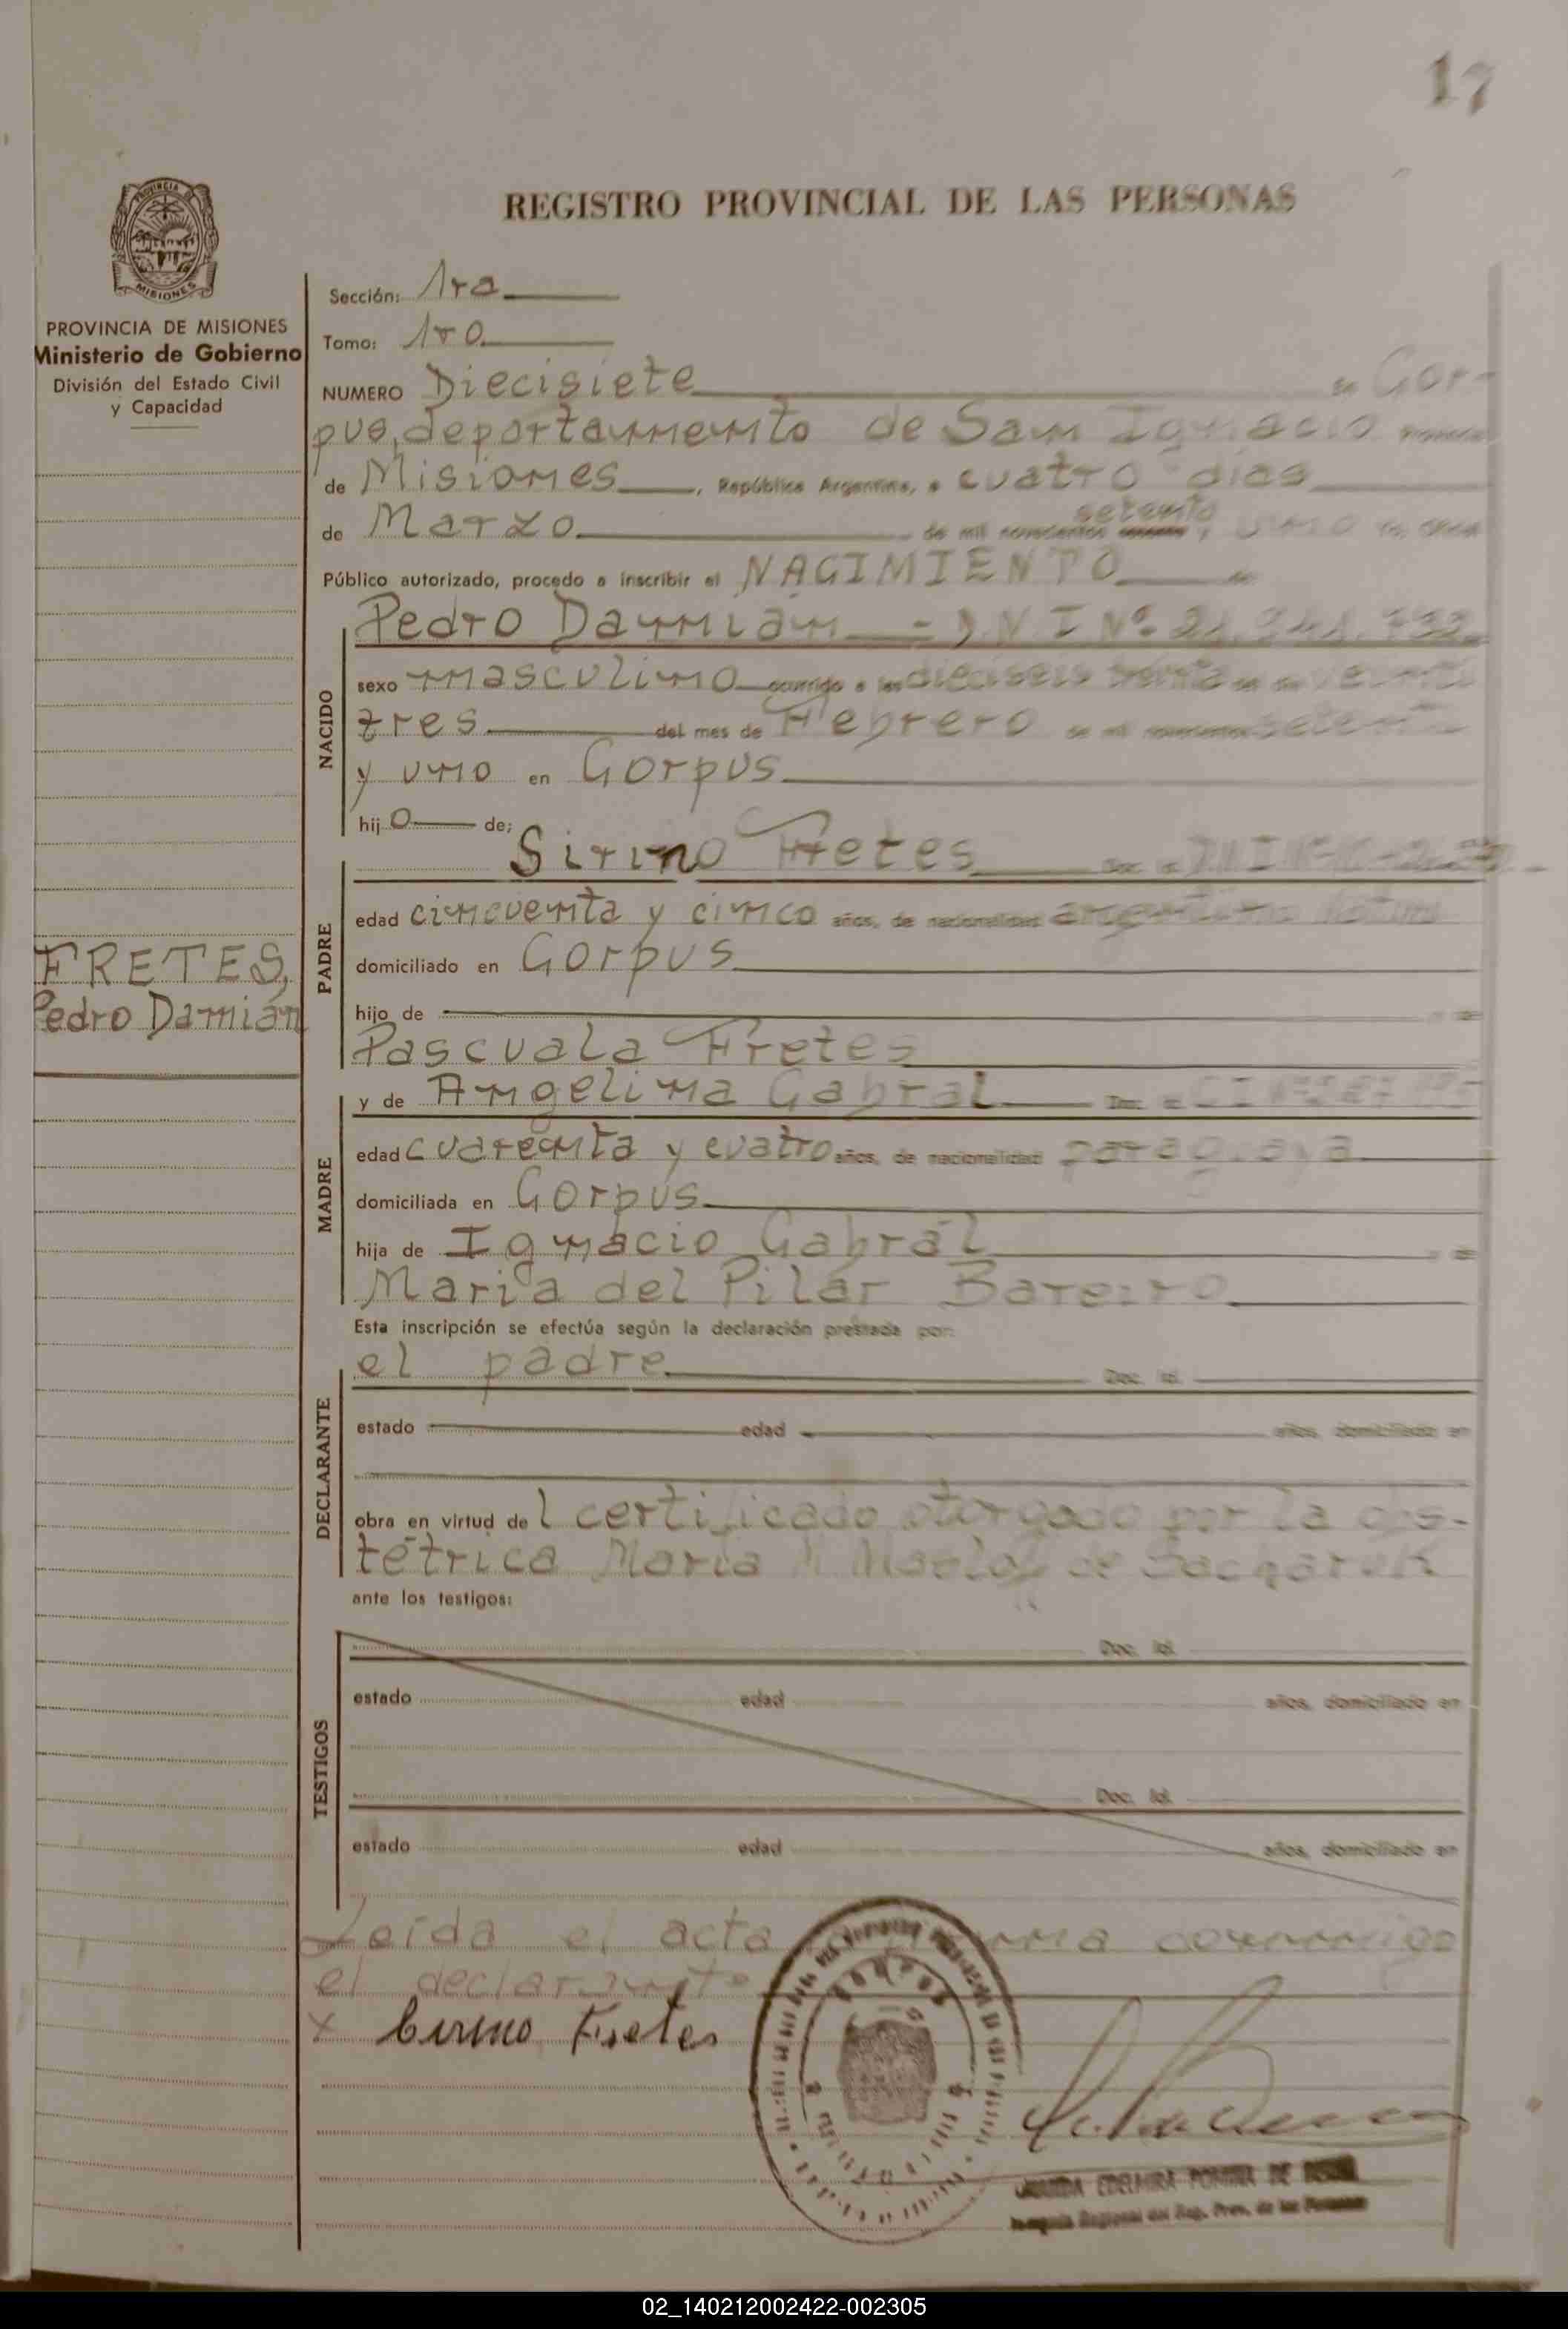 17
REGISTRO PROVINCIAL DE LAS PERSONAS
PROVINCIA
MISIONES
PROVINCIA DE MISIONES
Ministerio de Gobierno
División del Estado Civil
y Capacidad
FRETES,
Pedro Damián
Sección: 1ra
Tomo: 1ro
NUMERO Diecisiete en Cor-
pus, departamento de San Ignacio
de Misiones, República Argentina, a cuatro días
de Marzo de mil novecientos setenta y uno
Público autorizado, procedo a inscribir el NACIMIENTO de
NACIDO
Pedro Damian - D.N.I Nº
sexo masculino ocurrido a las dieciseis treinta veinti
tres del mes de Febrero de mil novecientos setenta
y uno en Corpus
hijo de:
PADRE
Sirino Fretes
edad cincuenta y cinco años, de nacionalidad argentino
domiciliado en Corpus
hijo de
Pascuala Fretes
MADRE
y de Angelina Cabral
edad cuarenta y cuatro años, de nacionalidad paraguaya
domiciliada en Corpus
hija de Ignacio Cabral
Maria del Pilar Bareiro
Esta inscripción se efectúa según la declaración prestada por:
DECLARANTE
el padre Doc. Id.
estado edad años, domiciliado en
obra en virtud del certificado otorgado por la obs-
tétrica Maria de
ante los testigos:
TESTIGOS
Doc. Id.
estado edad años, domiciliado en
Doc. Id.
estado edad años, domiciliado en
Leída el acta conmigo
el declarante
x Cirino Fretes
EDELMIRA DE
Regional del Reg. Prov. de las Personas
02_140212002422-002305